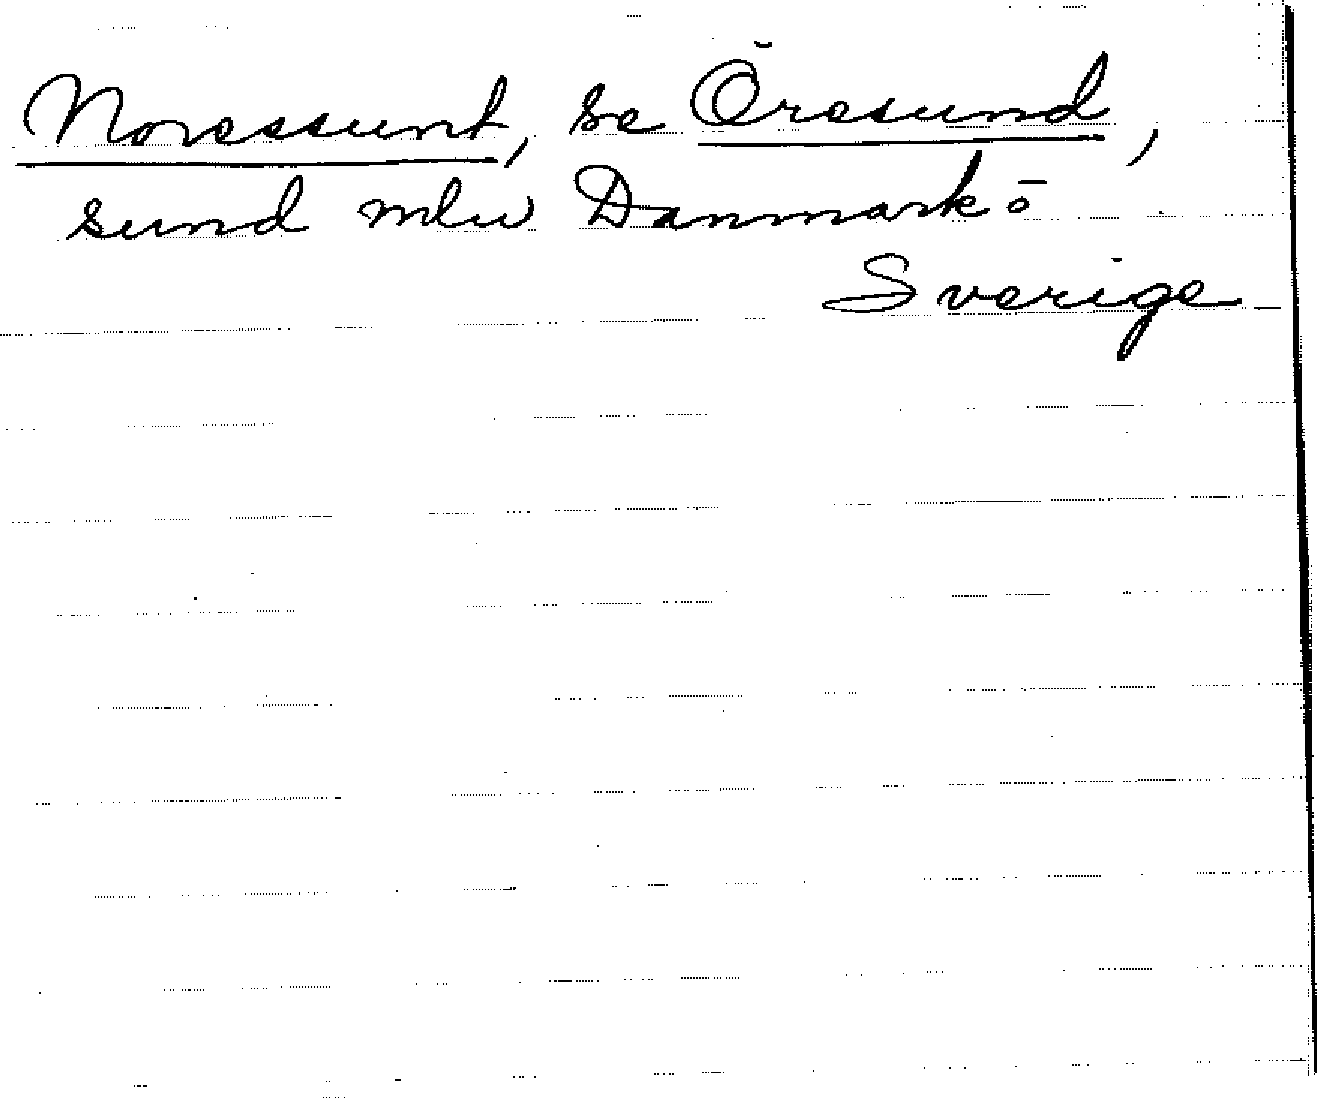 Noressunt, se Öresund,
sund mlu Danmark o
Sverige